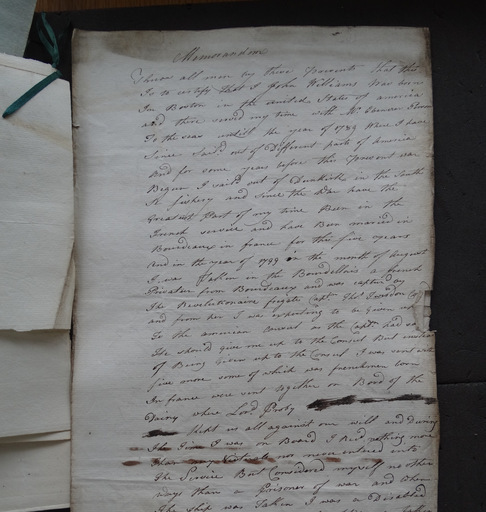 Memorandom
Know all men by these presents that this
Is to certify that I John Williams was born
In Boston in the united States of america
and there served my time with Mr
To the year untill the year of 1789 Were I have
Since Sail'd out of Different parts of America
And for some years before this present war
Began I sail'd out of Dunkirk in the South
fishery and since the War have the
Greatest Part of my time Been in the
French service and have Been maried in
Bourdeaux in france for this five years
And in the year of 1799 in the month of August
I was taken in the Bourdelais a french
Privatear from Bourdeaux and was capturd by
The Revolutionaire frigate Capt Ths Twisden
and from her I was expecting to be Given
To the american Consul as the Capt had
He should give me up to the Consul But instead
of Being Given up to the Consul I was sent with
five more some of which was frenchmen born
In france were sent together on Bord of the
Danay where Lord Proby
kept us all against our will and during
The Time I was on Board I Did nothing more
nor never entered into
The Service But Considered myself no other
ways than a Prisoner of war and when
The ship was taken I was a Disabled